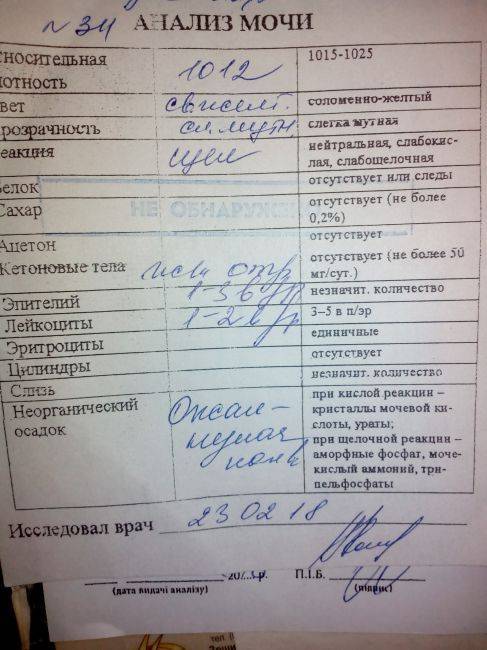 № 34 АНАЛИЗ МОЧИ
тносительная 1012 1015-1025
лотность
вет св. желт. соломенно-желтый
розрачность сл. мутн. слегка мутная
еакция щел нейтральная, слабокис-
лая, слабощелочная
Белок отсутствует или следы
Сахар НЕ ОБНАРУЖЕН отсутствует (не более
0,2%)
Ацетон отсутствует
Кетоновые тела отр отсутствует (не более 50
мг/сут.)
Эпителий 1-3 в п/зр незначит. количество
Лейкоциты 1-2 в п/зр 3–5 в п/зр
Эритроциты единичные
Цилиндры отсутствует
Слизь незначит. количество
Неорганический при кислой реакции –
осадок Оксал- кристаллы мочевой ки-
слоты, ураты;
при щелочной реакции –
аморфные фосфат, моче-
кислый аммоний, три-
пельфосфаты
Исследовал врач 23 02 18
20 р. П.І.Б.
(дата видачі аналізу) (підпис)
тел.